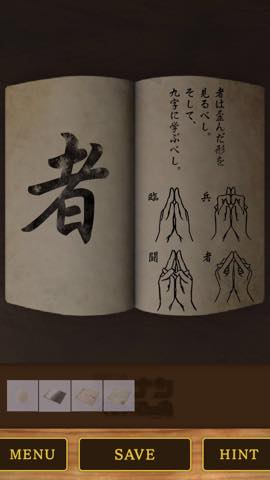 者
者は歪んだ形を
見るべし。
そして、
九字に学ぶべし。
臨
兵
闘
者
MENU
SAVE
HINT